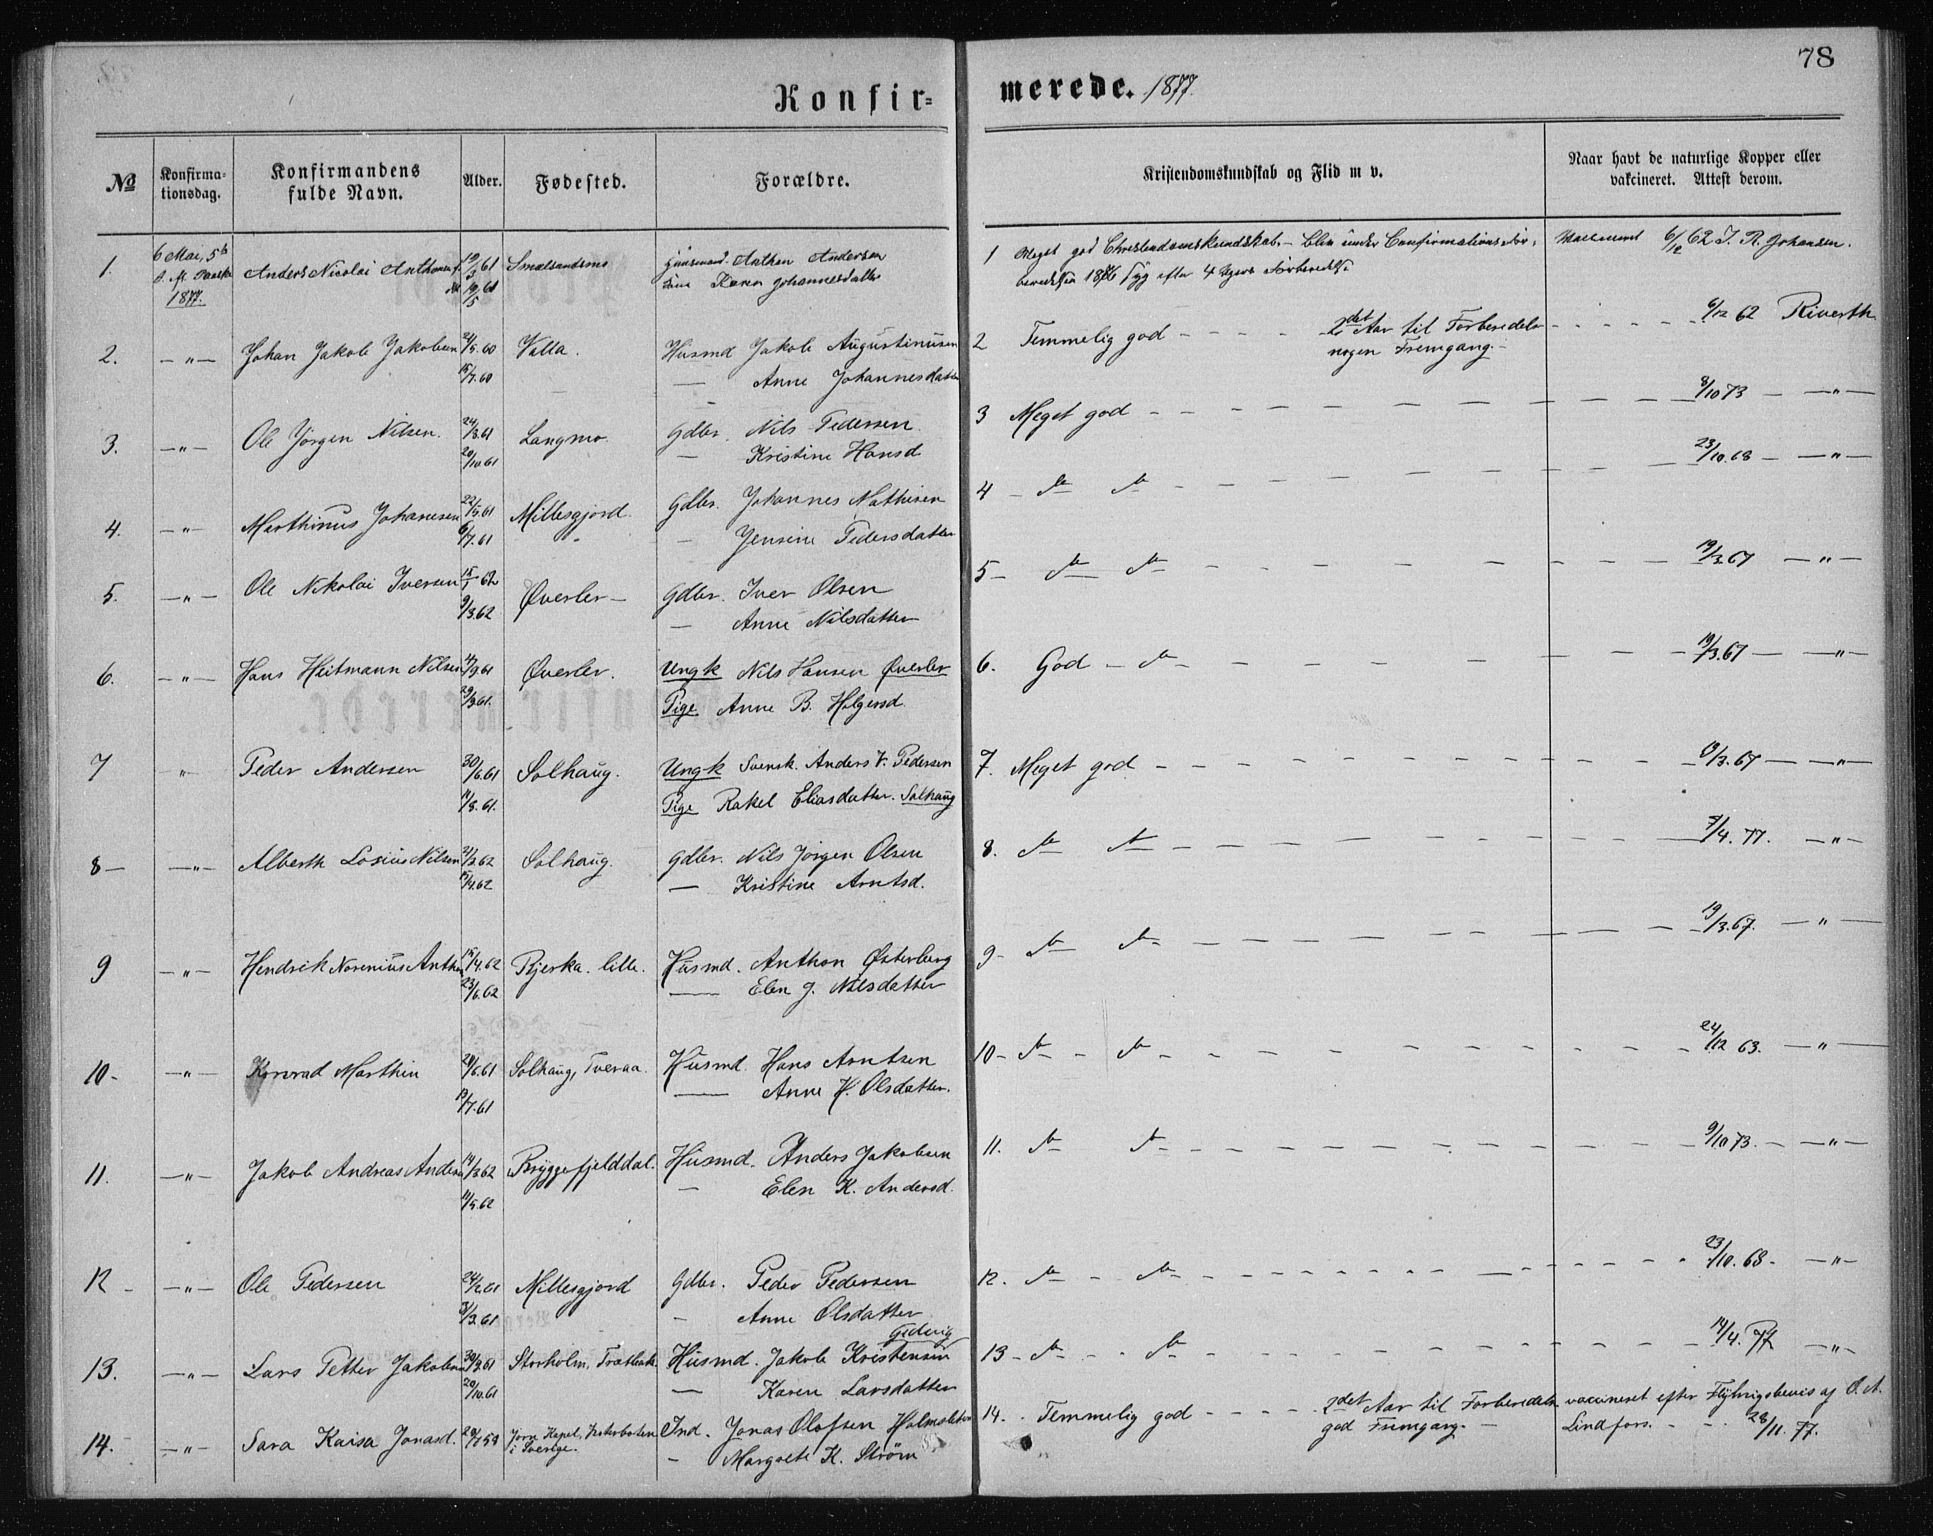 78
Konfir=
merede. 1877.
No
Konfirma-
tionsdag.
Konfirmandens
fulde Navn.
Alder.
Fødested.
Forældre.
Kristendomskundskab og Flid m v.
Naar havt de naturlige Kopper eller
vakcineret. Attest derom.
1. 6 Mai, 5te Anders Nicolai 19/3 61 Anthon Andersen
1877. 19/5 61 Karen Johannesdatter
1 Meget god Christendomskundskab. — Blev under Confirmations For-
beredelsen 1876 syg efter 4 Ugers Forberedelse
6/12 62 J. R. Johansen.
2. —"— Johan Jakob Jakobsen 21/5.60 Valla. Husmd Jakob Augustinusen
15/7.60 — Anne Johannesdatter
2 Temmelig god - - - - 2det Aar til Forberedelse
nogen Fremgang.
6/12 62 Riverth
3. —"— Ole Jörgen Nilsen. 24/3.61 Langmo. Gdbr. Nils Pedersen.
20/10.61 — Kristine Hansd.
3 Meget god 8/10 73 —"—
4. —"— Marthinus Johanesen 22/5.61 Millesgjord. Gdbr. Johannes Mathisen
6/7.61 — Jensine Pedersdatter
4 - do do 23/10.68 —"—
5. —"— Ole Nikolai Iversen 15/1 62 Øverler — Gdbr. Iver Olsen
9/3.62 — Anne Nilsdatter
5 - do do 19/3.67 —"—
6. —"— Hans Heitmann Nilsen 4/9.61 Øverler. Ungk Nils Hansen Øverler
29/9.61. Pige Anne B. Holgersd.
6. God - do 19/3.67 —"—
7 " Peder Andersen 30/6.61 Solhaug. Ungk Svensk. Anders V. Pedersen
11/8.61. Pige Rakel Eliasdatter. Solhaug
7. Meget god. 19/3.67 —"—
8 — —"— Alberth Losius Nilsen 21/2.62 Solhaug. Gdbr. Nils Jörgen Olsen
15/4.62 — Kristine Arntsd.
8. do do 7/4.77. —"—
9 —"— Hendrik Norenius Anthon 15/4.62 Bjerka. lille. Husmd. Anthon Østerberg
23/6.62 — Elen J. Nilsdatter
9 - do do 19/3.67. —"—
10 - —"— Konrad Marthin 24/6.61 Solhaug, Tveraa. Husmd. Hans Arntsen
19/7.61 — Anne H. Olsdatter.
10 - do - do 24/12 63. —"—
11. —"— Jakob Andreas Anders 14/3.62 Bryggefjelddal. Husmd. Anders Jakobsen
11/5.62 — Elen K. Andersd.
11. do do 9/10 73. —"—
12 - —"— Ole Pedersen 24/2.61 Millesgjord Gdbr. Peder Pedersen
31/3.61 - Anne Olsdatter
12. do - do 23/10.68. —"—
13. —"— Lars Petter Jakobsen 30/9.61 Storholm, Husmd. Jakob Kristensen
20/10.61 — Karen Larsdatter
13 - do - do 14/4.77 —"—
14. —"— Sara Kaisa Jonasd. 29/1 59 Jørn Kapel, Vesterbotten Ind. Jonas Olofsen
i Sverige. - Margrete K. Strøm
14. Temmelig god - - - - 2det Aar til Forberedelse vaccineret efter Flytningsbevis af O. A.
god Fremgang. — Lindfors. 28/11.77.